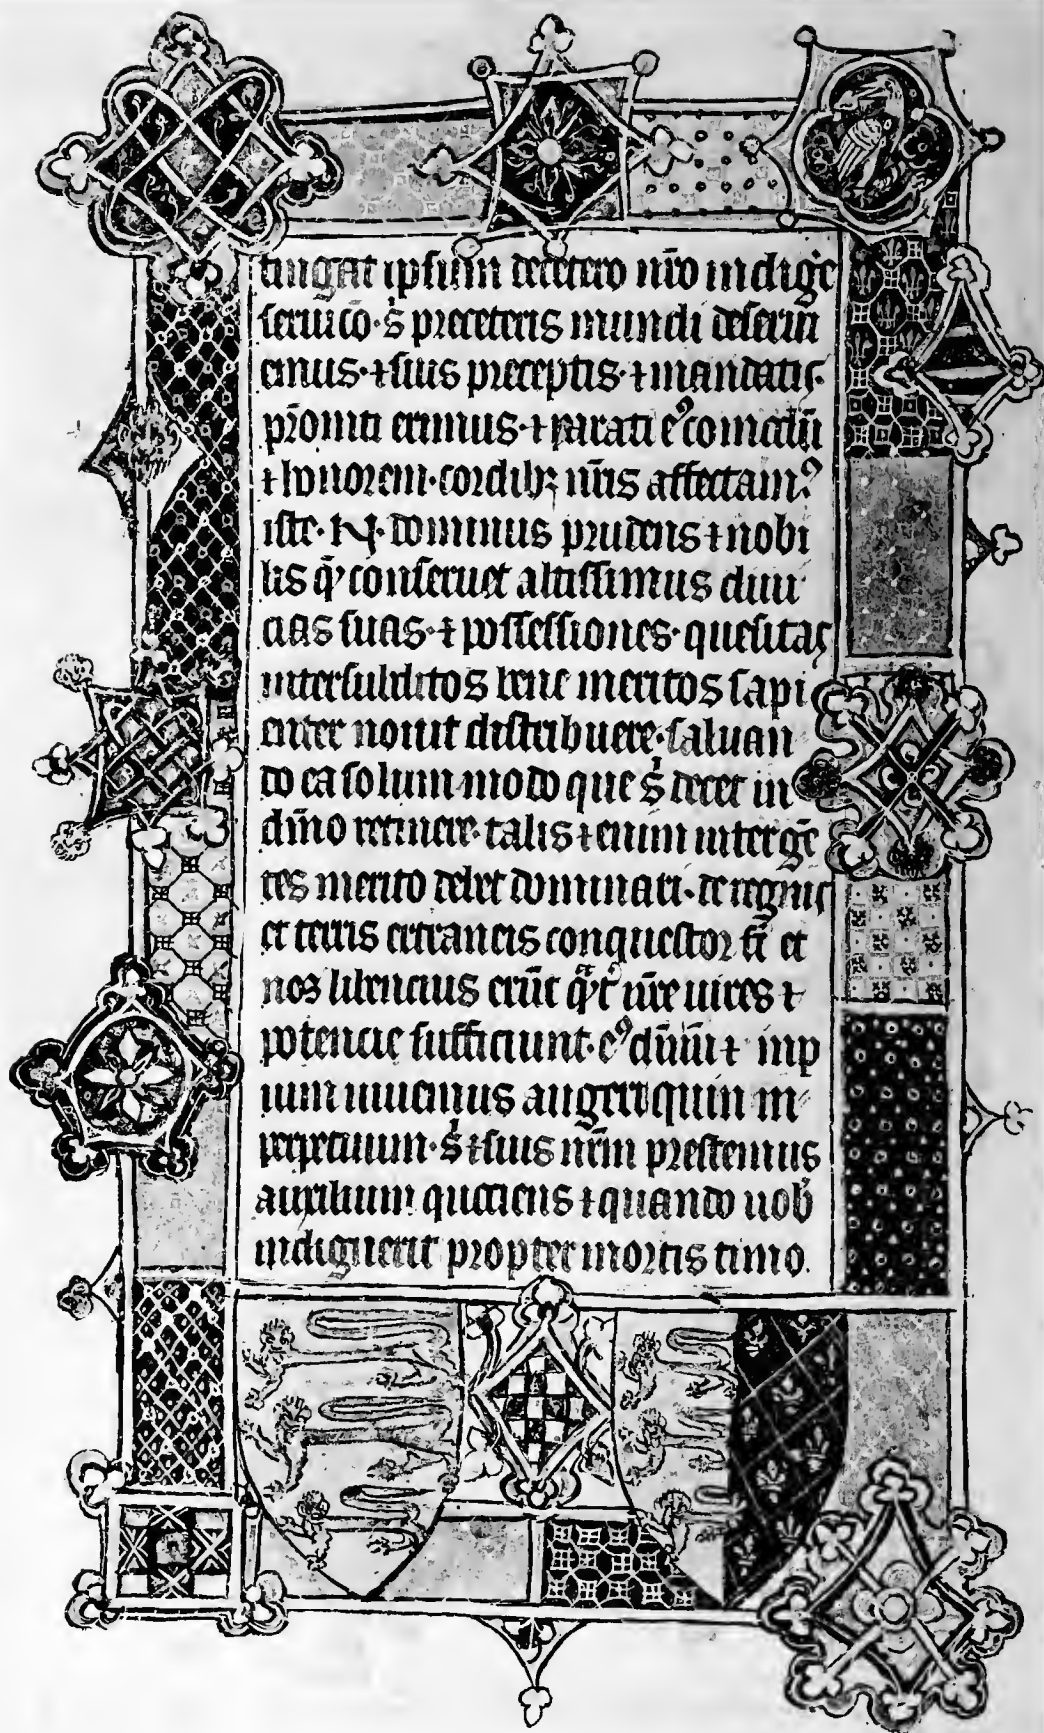 tingat ipsum decetero nr̄o indigē
seruico·s; preceteris mundi deserui
emus·⁊suis preceptis·⁊mandatis·
prōmti erimus·⁊parati eꝰcōmodū
⁊honorem·cordibꝫ nr̄is affectamꝰ
iste·N·dominus prudens⁊nobi
lis q̄ conseruet altissimus diui
cias suas·⁊possessiones·quesitas
intersubditos bene meritos sapi
enter nouit distribuere·saluan
do ea solum modo que s; decet in
dn̄o retinere·talis⁊enim intergē
tes merito debet dominari·de regnis
et terris extraneis conquestor et
nos libencius erūt nr̄e uires⁊
potencie sufficiunt·eꝰdn̄iū⁊ imp
ium iuuemus augeri quin in
perpetuum·s;⁊suis nr̄m prestemus
auxilium quociens⁊quando uob̄
indiguerit propter mortis timo.